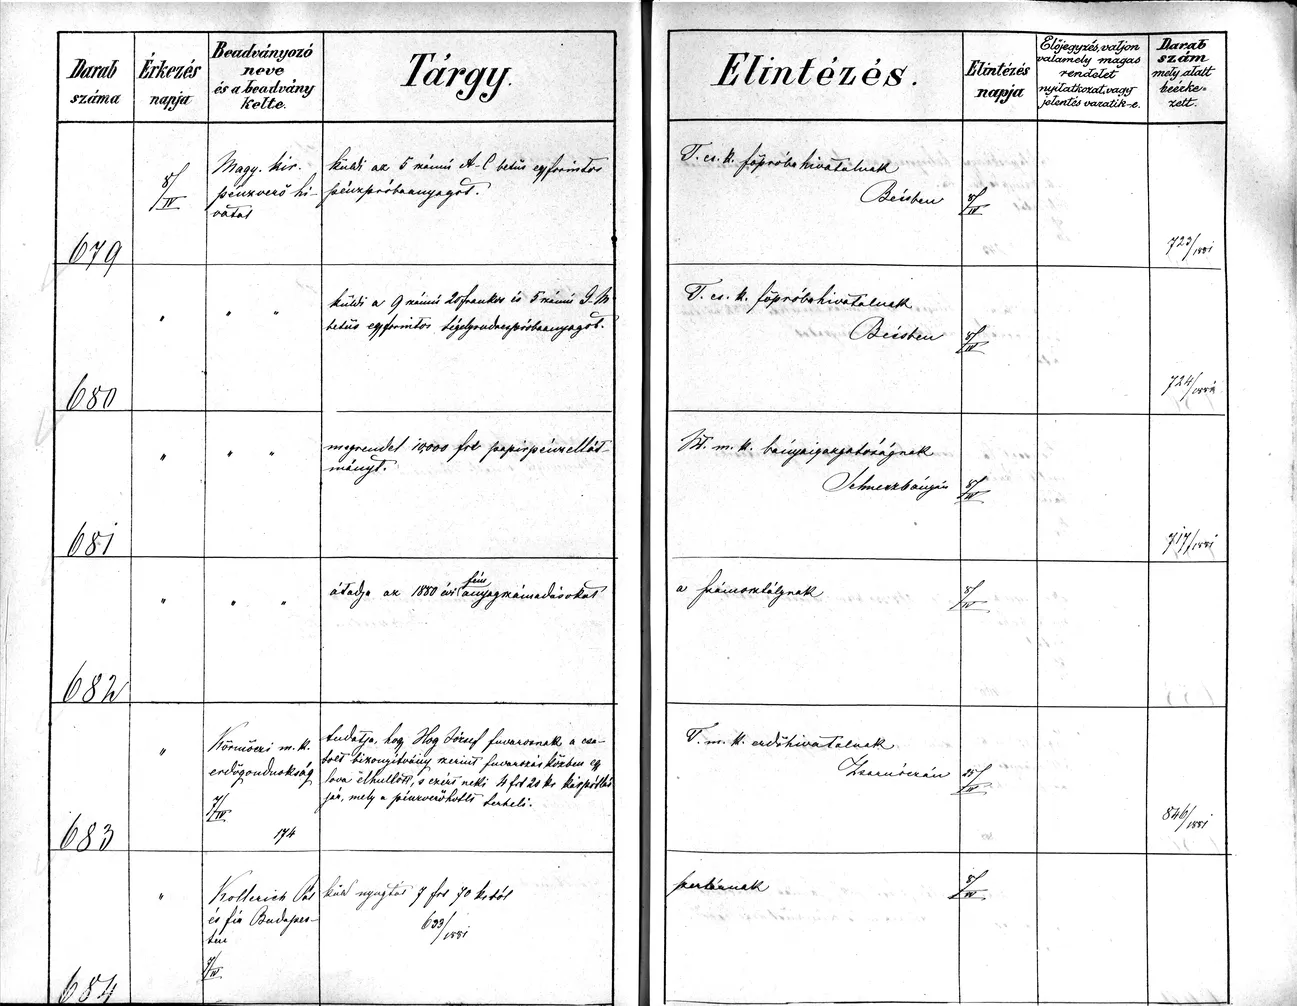 Darab
száma
Érkezés
napja
Beadványozó
neve
és a beadvány
kelte.
Tárgy.
Elintézés.
Elintézés
napja
Előjegyzés, valjon
valamely magas
rendelet
nyilatkozat, vagy
jelentés váratik-e.
Darab
szám
mely alatt
beérke-
zett.
679
8/IV
Magy. kir.
pénzverő hi-
vatal
küldi az 5 számú A-C betűs egyforintos
pénzpróbaanyagot.
T. cs. k. főpróbahivatalnak
Bécsben
8/IV
723/1881
680
"
" "
küldi a 9 számú 20frankos és 5 számú
betűs egyforintos
T. cs. k. főpróbahivatalnak
Bécsben
8/IV
724/1881
681
"
" "
megrendel 10,000 frt papirpénzellát-
mányt.
M. k. bányaigazgatóságnak
Selmeczbányán
8/IV
717/1881
682
"
" "
átadja az 1880 évi fém anyagszámadásokat
a számosztálynak
8/IV
683
"
Körmöczi m. k.
erdőgondnokság
7/IV
174
tudatja, hogy Hog József fuvarosnak a csa-
tolt bizonyitvány szerint fuvarozás közben egy
lova elhullott, s ezért neki 4 frt 20 kr
jár, mely a pénzverőhivatalt terheli.
T. m. k. erdőhivatalnak
Zsarnóczán
25/IV
846/1881
684
"
Kollerich Pál
és fia Budapes-
ten
7/IV
küld nyugtát 7 frt 70 krtól
633/1881
pertárnak
8/IV